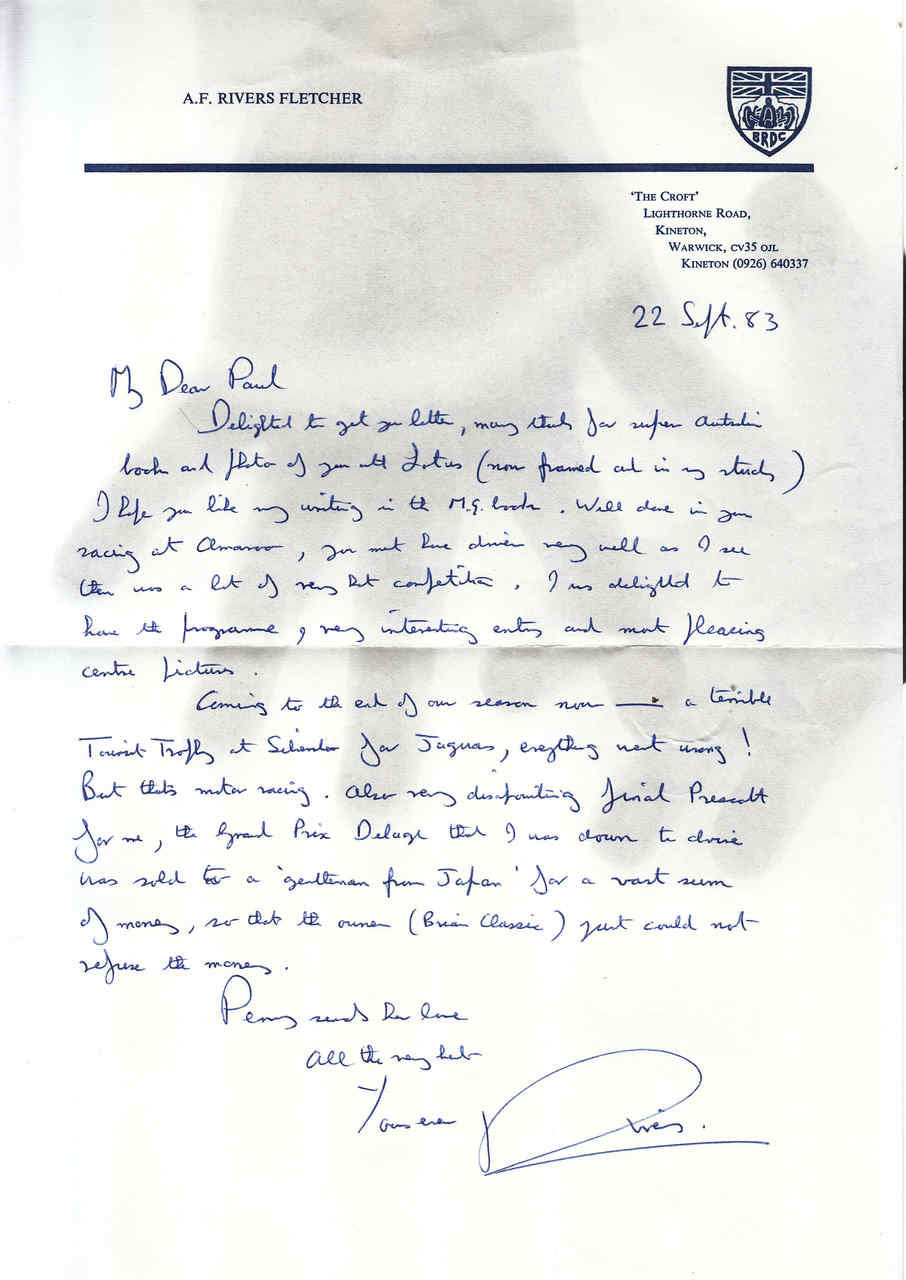 A.F. RIVERS FLETCHER
BRDC
'THE CROFT'
LIGHTHORNE ROAD,
KINETON,
WARWICK, CV35 OJL
KINETON (0926) 640337
22 Sept. 83
My Dear Paul
Delighted to get your letter, many thanks for super Australian
book and photo of you with Lotus (now framed and in my study)
I hope you like my writing in the M.G. book. Well done in your
racing at Amaroo, you must have driven very well as I see
there was a lot of very hot competition. I was delighted to
have the programme, very interesting entry and most pleasing
centre pictures.
Coming to the end of our season now — a terrible
Tourist Trophy at Silverstone for Jaguars, everything went wrong!
But thats motor racing. Also very disappointing final Prescott
for me, the Grand Prix Delage that I was down to drive
was sold to a 'gentleman from Japan' for a vast sum
of money, so that the owner (Brian Classic) just could not
refuse the money.
Penny sends her love
All the very best
Yours ever
Rivers.